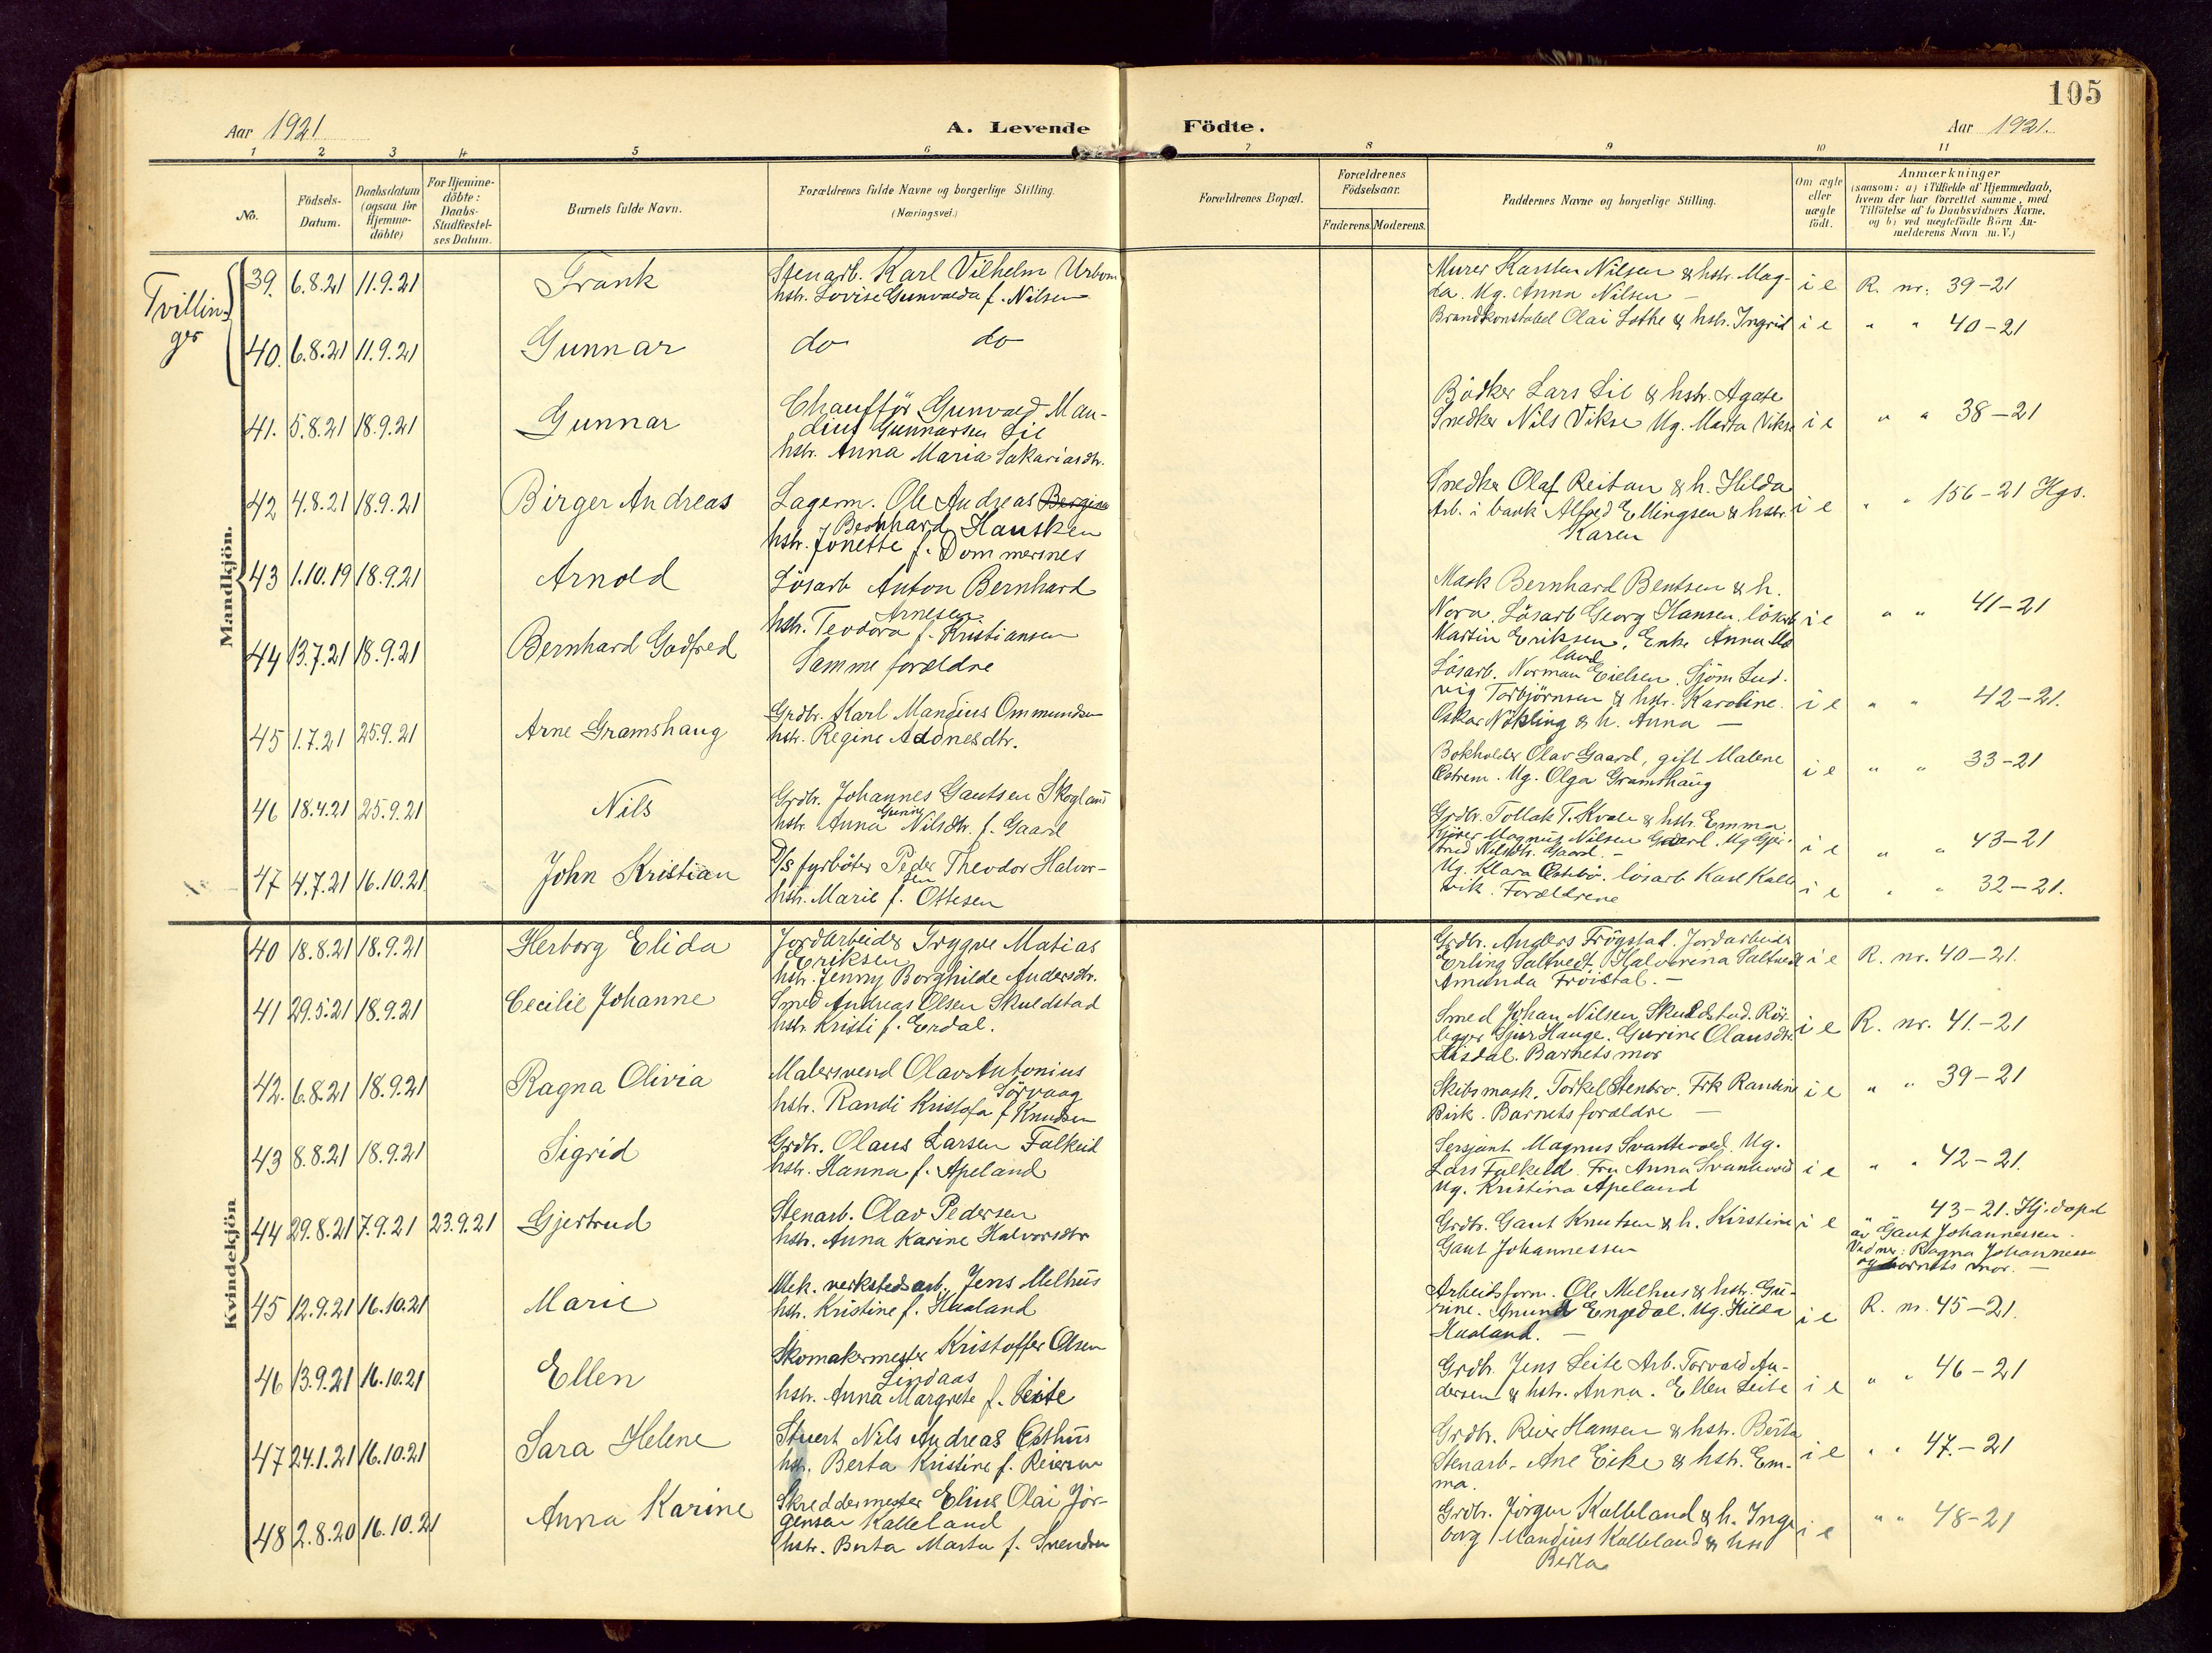 105
Aar 1921
A. Levende Födte.
Aar 1921.
1 2 3 4 5 6 7 8 9 10 11
No.
Födsels-
Datum.
Daabsdatum
(ogsaa for
Hjemme-
döbte)
For Hjemme-
döbte:
Daabs-
Stadfæstel-
ses Datum.
Barnets fulde Navn.
Forældrenes fulde Navne og borgerlige Stilling.
(Næringsvei.)
Forældrenes Bopæl.
Forældrenes
Födselsaar.
Faderens. Moderens.
Faddernes Navne og borgerlige Stilling.
Om ægte
eller
uægte
födt.
Anmærkninger
(saasom: a) i Tilfælde af Hjemmedaab,
hvem der har forrettet samme, med
Tilföielse af to Daabsvidners Navne.
og b) ved uægtefödte Börn An-
melderens Navn m. V.)
Tvillin-
ger
Mandkjön.
39. 6.8.21 11.9.21 Frank
Stenarb. Karl Vilhelm Urbom
hstr. Lovise Gunvalda f. Nilsen
Murer Karsten Nilsen & hstr. Mag-
da. Ug. Anna Nilsen —
i e R. nr. 39-21
40. 6.8.21 11.9.21 Gunnar
do do
Brandkonstabel Olai Lothe & hstr. Ingrid
i e " " 40-21
41. 5.8.21 18.9.21 Gunnar
Chauffør Gunvald Man-
dius Gunnarsen Lie
hstr. Anna Maria Sakariasdtr.
Bödker Lars Lie & hstr. Agate
Snedker Nils Vikse Ug. Marta Vikse
i e " " 38-21
42 4.8.21 18.9.21 Birger Andreas
Lagerm. Ole Andreas
Bernhard Hausken
hstr. Jonette f. Dommersnes
Snedker Olaf Reitan & h. Hilda
Arb. i bank Alfred Ellingsen & hstr.
Karen
i e " " 156-21 Hgs.
43 1.10.19 18.9.21 Arnold
Lösarb Anton Bernhard
Arnesen
hstr. Teodora f. Kristiansen
Mask Bernhard Bentsen & h.
Nora. Lösarb Georg Hansen. lösarb
Martin Eriksen. Enke Anna Mo
land
i e " " 41-21
44 13.7.21 18.9.21 Bernhard Godfred
Samme forældre
Lösarb. Norman Eielsen. Sjöm Lud-
vig Torbjörnsen & hstr. Karoline.
Oskar Nökling & h. Anna —
i e " " 42-21.
45 1.7.21 25.9.21 Arne Gramshaug
Grdbr. Karl Mandius Ommundsen
hstr. Regine Adonesdtr.
Bokholder Olav Gaard, gift Malene
Østrem. Ug. Olga Gramshaug
i e " " 33-21
46 18.4.21 25.9.21 Nils
Grdbr. Johannes Gautsen Skogland
hstr Anna Gurine Nilsdtr. f. Gaard
Grdbr. Tollak T. Kvale & hstr. Emma
Magnus Nilsen Gaard. Ug Gjer-
trud Nilsdtr. Gaard. —
i e " " 43-21
47 4.7.21 16.10.21 John Kristian
D/s fyrböter Peder Theodor Halvor-
sen
hstr. Marie f. Ottesen
Ug. Klara Østebö. lösarb Karl Kalle
vik. Forældrene
i e " " 32-21.
Kvindekjön
40 18.8.21 18.9.21 Herborg Elida
Jordarbeider Tryggve Matias
Eriksen
hstr. Jenny Borghilde Andersdtr.
Grdbr. Anders Frögstad. Jordarbeider
Erling Saltvedt. Halvorina Saltvedt
Amanda Fröistal. —
i e R. nr. 40-21.
41 29.5.21 18.9.21 Cecilie Johanne
Smed Andreas Olsen Skuldstad
hstr. Kristi f. Erdal.
Smed Johan Nilsen Skuldstad. Rör-
legger Sjur Hauge. Gurine Olausdtr.
Aisdal. Barnets mor
i e R. nr. 41-21
42. 6.8.21 18.9.21 Ragna Olivia
Malersvend Olav Antonius
Sörvaag
hstr. Randi Kristofa f Knudsen
Skibsmask. Torkel Stenbro. Frk Randine
Birk. Barnets forældre —
i e " " 39-21
43 8.8.21 18.9.21 Sigrid
Grdbr. Olaus Larsen Falkeid
hstr. Hanna f. Apeland
Sersjant Magnus Svantevold. Ug.
Lars Falkeid. Fru Anna Svantevold
Ug. Kristina Apeland
i e " " 42-21.
44 29.8.21 7.9.21 23.9.21 Gjertrud
Stenarb. Olav Pedersen
hstr. Anna Karine Halvorsdtr
Grdbr. Gaut Knutsen & h. Kirstine
Gaut Johannessen
i e " " 43-21. Hj.döpt
av Gaut Johannessen.
Vidner: Ragna Johannessen
og barnets mor. —
45 12.9.21 16.10.21 Marie
Mek. verkstedsarb. Jens Melhus
hstr. Kristine f. Haaland
Arbeidsform. Ole Melhus & hstr. Gu-
rine. Amund Engedal. Ug. Hilda
Haaland. —
i e R. nr. 45-21.
46 13.9.21 16.10.21 Ellen
Skomakermester Kristoffer Olsen
Lindaas
hstr. Anna Margrete f. Leite
Grdbr. Jens Leite Arb. Torvald An-
dersen & hstr. Anna. Ellen Leite
i e " " 46-21
47 24.1.21 16.10.21 Sara Helene
Stuert Nils Andreas Østhus
hstr. Berta Kristine f. Reiersen
Grdbr. Reier Hansen & hstr. Berta
Stenarb. Ane Eike & hstr. Em-
ma.
i e " " 47.-21
48 2.8.20 16.10.21 Anna Karine
Skreddermester Elius Olai Jör-
gensen Kalleland
hstr. Berta Marta f. Svendsen
Grdbr. Jörgen Kalleland & h. Inge
borg Mandius Kalleland & hstr
Berta
i e " " 48-21